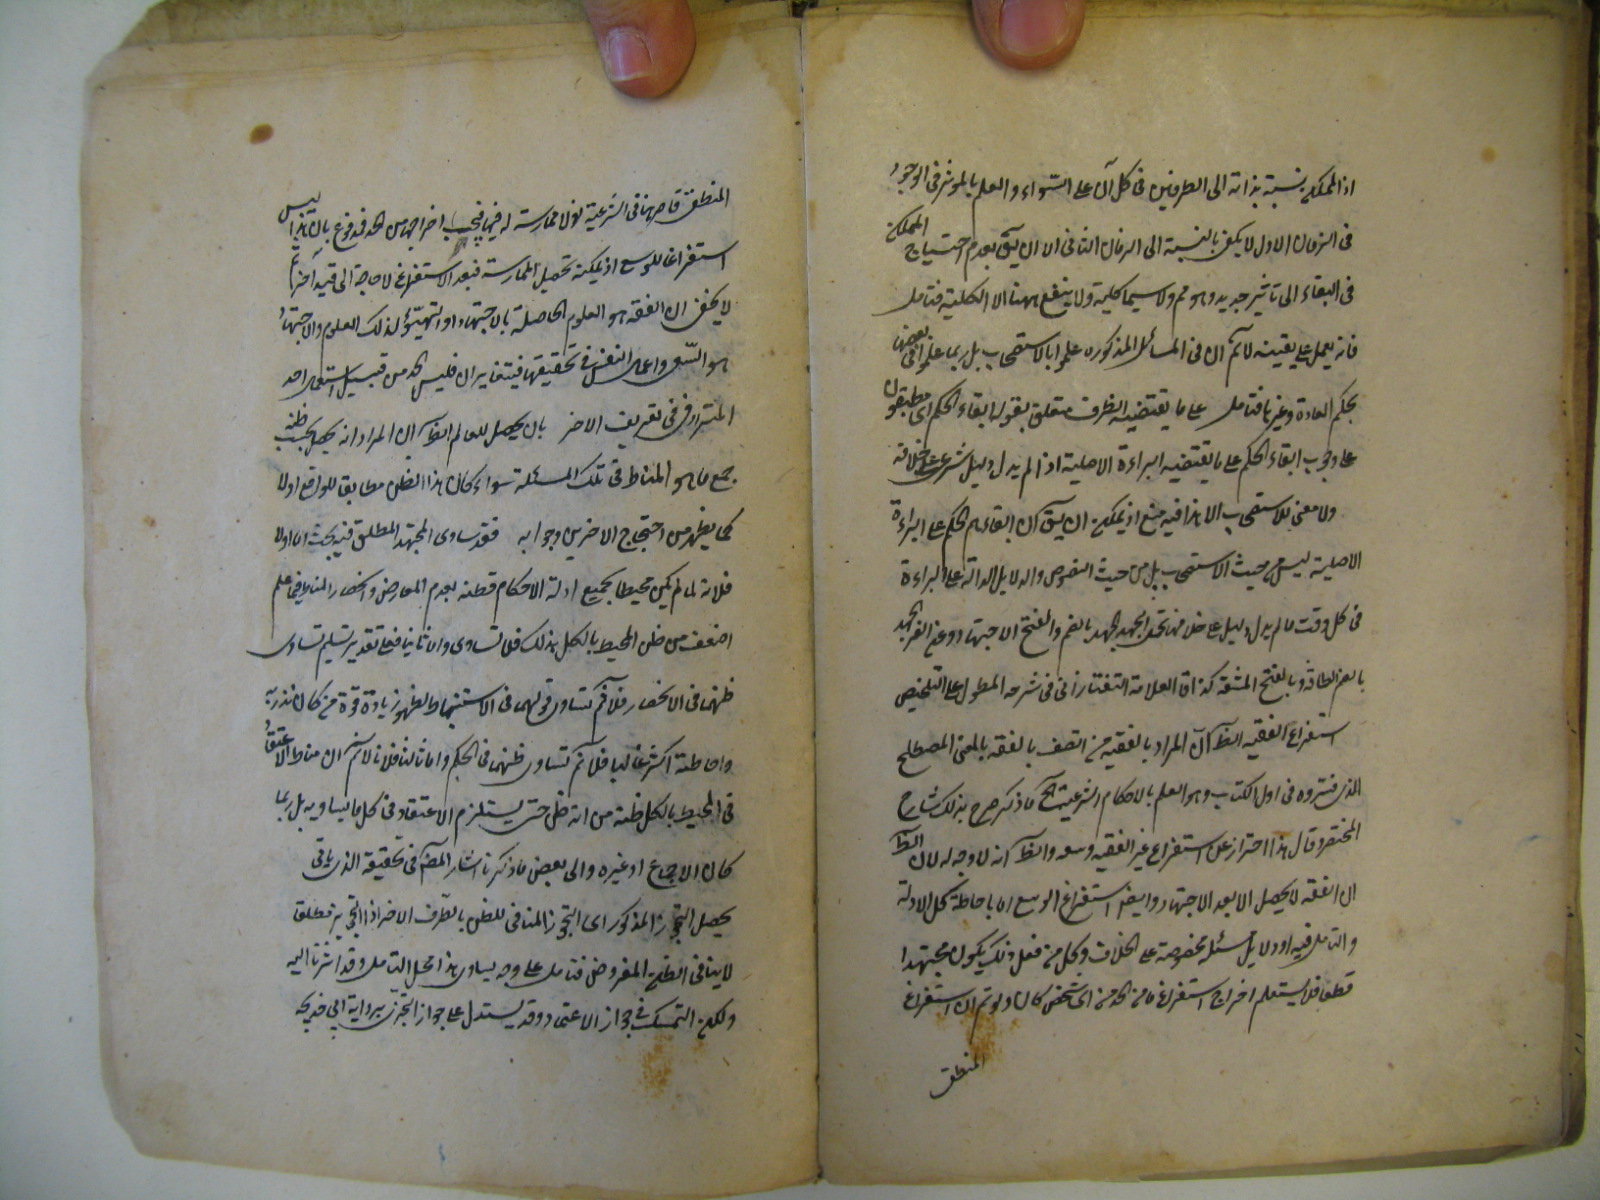 اذ الممكن نسبة بذاته الى الطرفين فى كل آن على السواء والعلم بالموثر فى الوجود
فى الزمان الاول لا يكفى بالنسبة الى الزمان الثانى الا ان يق بعدم احتياج الممكن
فى البقاء الى تاثير جديد وهو مم ولا سيما كلية ولا ينفع ههنا الا الكلية فتامل
فانه يعمل على يقينه لا نم ان فى المسائل المذكوره علموا بالاستصحاب بل ربما علموا فى بعضها
بحكم العادة وغيرها فتامل على ما يقتضيه الظرف متعلق بقوله ابقاء الحكم اى مطبقون
على وجوب ابقاء الحكم على ما يقتضيه البراءة الاصلية اذ لم يدل دليل شرعى على خلافه
ولا معنى للاستصحاب الا هذا فيه منع اذ يمكن ان يق ان ابقاءهم الحكم على البراءة
الاصلية ليس من حيث الاستصحاب بل من حيث النصوص والدلايل الدالة على البراءة
فى كل وقت ما لم يدل دليل على خلافه تحمل الجهد الجهد بالضم والفتح الاجتهاد وعن الفراء الجهد
بالضم الطاقة وبالفتح المشقة كذا قال العلامة التفتازانى فى شرحه المطول على التلخيص
استفراغ الفقيه الظ ان المراد بالفقيه من اتصف بالفقه بالمعنى المصطلح
الذى فسروه فى اول الكتاب وهو العلم بالاحكام الشرعية الخ ما ذكر صرح بذلك شارح
المختصر وقال هذا احتراز عن استفراغ غير الفقيه وسعه والظ انه لا وجه له لان الظ
ان الفقه لا يحصل الا بعد الاجتهاد وايضا استفراغ الوسع اما باحاطة كل الادلة
والتامل فيه او دلايل مسئلة مخصوصة على الخلاف وكل من فعل ذلك يكون مجتهدا
قطعا فلا يستعلم اخراج استفراغ ما من الحد من اى شخص كان ولو تم ان استفراغ
المنطقى
المنطقى قاصر هنا فى الشرعية لانه لا ممارسة له فيها فيجب اخراجه من الحد فمدفوع بان هذا ليس
استفراغا للوسع اذ يمكنه تحصيل الممارسة فبعد الاستفراغ لا حاجة الى قيد آخر
لا يخفى ان الفقه هو العلوم الحاصلة بالاجتهاد او التهيؤ لذلك العلوم والاجتهاد
هو السعى واعمال النفس فى تحقيقها فيتغايران فليس الحد من قبيل استعمال احد
المترادفين فى تعريف الاخر بان يحصل للعالم الظ ان المراد انه يحصل بحسب ظنه
جمع ما هو المناط فى تلك المسئلة سواء كان هذا الظن مطابقا للواقع اولا
كما يظهر من احتجاج الاخرين وجوابه فقد ساوى المجتهد المطلق فيه بحث اما اولا
فلانه لما لم يكن محيطا بجميع ادلة الاحكام فظنه بعدم المعارض وانحصار المناط فيما علم
اضعف من ظن المحيط بالكل بذلك فلا تساوى واما ثانيا فعلى تقدير تسليم تساوى
ظنهما فى الانحصار فلا نم تساوى قولهما فى الاستنباط لظهور زيادة قوة من كان تدربه
واحاطته اكثر غالبا فلا نم تساوى ظنهما فى الحكم واما ثالثا فلانا لا نم ان مناط الاعتقاد
فى المحيط بالكل ظنه من انه ظن حتى يستلزم الاعتقاد فى كل ما يساويه بل ربما
كان الاجماع او غيره والى بعض ما ذكرنا اشار المصنف فى تحقيقه الذى ياتى
يحصل التجوز المذكور اى التجوز المنافى للظن بالطرف الاخر اذ التجويز مطلقا
لا ينافى الظن المفروض فتامل على وجه يساوى هذا محل التامل وقد اشرنا اليه
ولكن التمسك فى جواز الاعتماد وقد يستدل على جواز التجزى برواية ابى خديجه